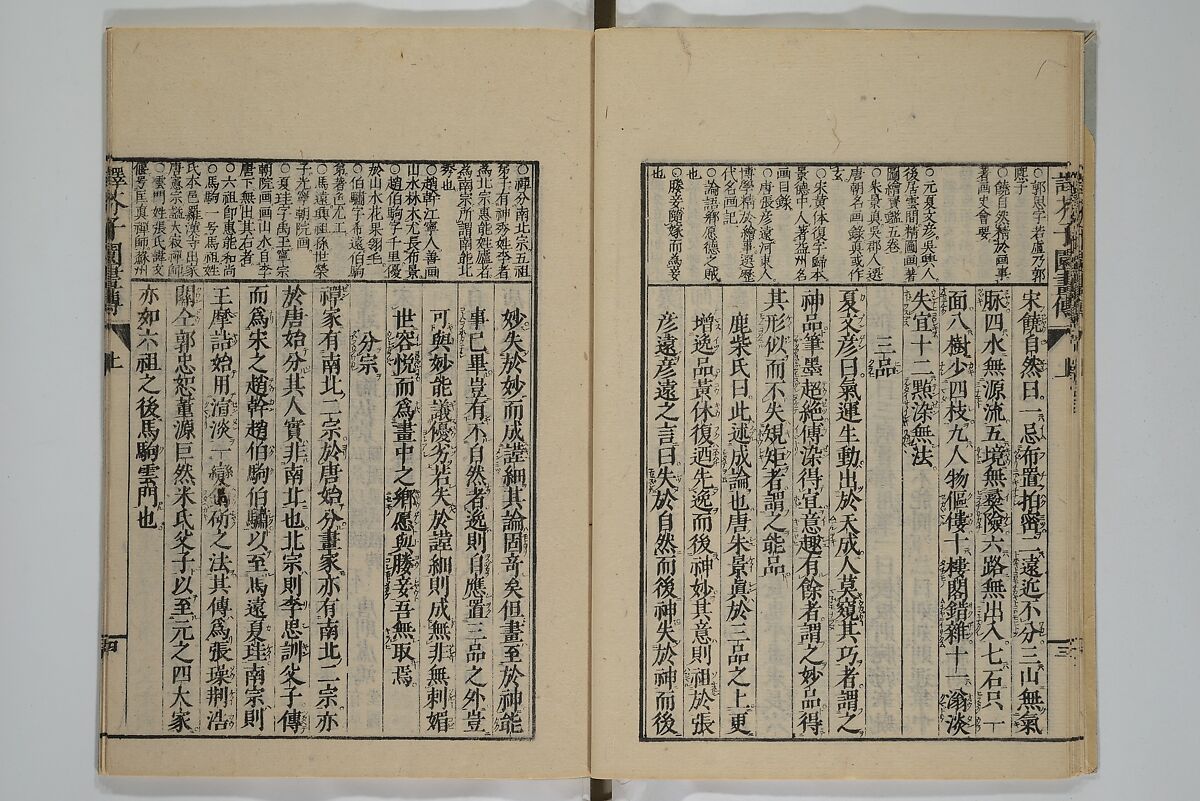 ○郭思字若虛乃郭
熙子
○饒自然精於画事
著画史會要
○元夏文彦吳興人
後居雲間精圖画著
圖繪宝鑑五卷
○朱景真吳郡人選
唐朝名画録真或作
玄
○宋黃休復字歸本
景德中人著益州名
画目錄
○唐張彦遠河東人
博學精於繪事選歴
代名画記
○論語鄉愿德之賊
也
○媵妾隨嫁而為妾
也
宋饒自然曰一忌布置拍密二遠近不分三山無氣
脉四水無源流五境無夷險六路無出入七石只一
面八樹少四枝九人物傴僂十樓閣錯雜十一滃淡
失宜十二點染無法
三品
夏文彦曰氣運生動出於天成人莫窺其巧者謂之
神品筆墨超絕傳染得宜意趣有餘者謂之妙品得
其形似而不失規矩者謂之能品
鹿柴氏曰此述成論也唐朱景真於三品之上更
增逸品黃休復迺先逸而後神妙其意則祖於張
彦遠彦遠之言曰失於自然而後神失於神而後
三
○禪分南北宗五祖
弟子有神秀姓李者
為北宗惠能姓盧者
為南宗所謂南能北
秀也
○趙幹江寧人善画
山水林木尤長布景
○趙伯駒字千里優
於山水花果翎毛
○伯驌字希遠伯駒
弟著色尤工
○馬遠興祖孫世榮
子光寧朝院画
○夏珪字禹玉寧宗
朝院画画山水自李
唐下無出其右者
○六祖即惠能和尚
○馬駒一号馬祖姓
氏本邑羅漢寺出家
唐憲宗謚大寂禪師
○雲門姓張氏諱文
偃号匡真禪師蘇州
妙失於妙而成謹細其論固奇矣但畫至於神能
事已畢豈有不自然者逸則自應置三品之外豈
可與妙能議優劣若失於謹細則成無非無刺媚
世容悅而為畫中之鄉愿與媵妾吾無取焉
分宗
禪家有南北二宗於唐始分畫家亦有南北二宗亦
於唐始分其人實非南北也北宗則李思訓父子傳
而為宋之趙幹趙伯駒伯驌以至馬遠夏珪南宗則
王摩詰始用渲淡一變鉤斫之法其傳為張璪荆浩
關仝郭忠恕董源巨然米氏父子以至元之四大家
亦如六祖之後馬駒雲門也
譯芥子園畫傳
上
四